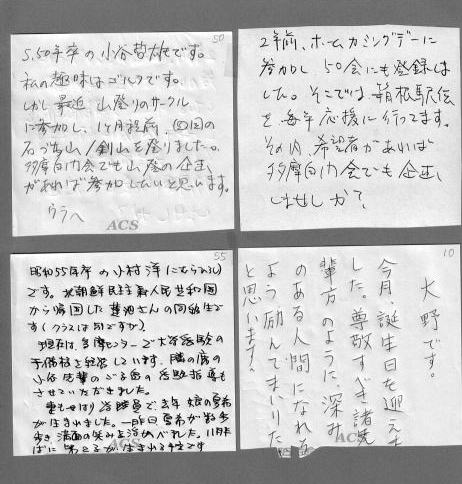 50
S.50年卒の小谷哲雄です。
私の趣味はゴルフです。
しかし最近 山登りのサークル
に参加し、1ヶ月程前、四国の
石づち山/剣山を登りました。
多摩白門会でも山登の企画
があれば参加したいと思います。
ウラへ
ACS
2年前、ホームカミングデーに
参加し 50会にも登録は
した。そこでは箱根駅伝
を毎年応援に行ってます。
その内、希望者があれば
多摩白門会でも企画
しませんか?
55
昭和55年卒の小村洋
です。北朝鮮民主主義人民共和国
から帰国した蓮池さんの同級生
です(クラスは別ですが)
現在は、多摩センターで大学受験の
予備校を経営しています。隣の席の
先輩のご子息の受験指導も
させていただきました。
去年 娘の
が生まれました。一昨日 が数歩
歩き 満面の笑みを浮かべれた。11月
ばに 第2子が生まれる予定です
ACS
10
大野です。
今月、誕生日を迎えま
した。尊敬すべき諸先
輩方のように、深み
のある人間になれる
よう励んでまいりたい
と思います。
ACS